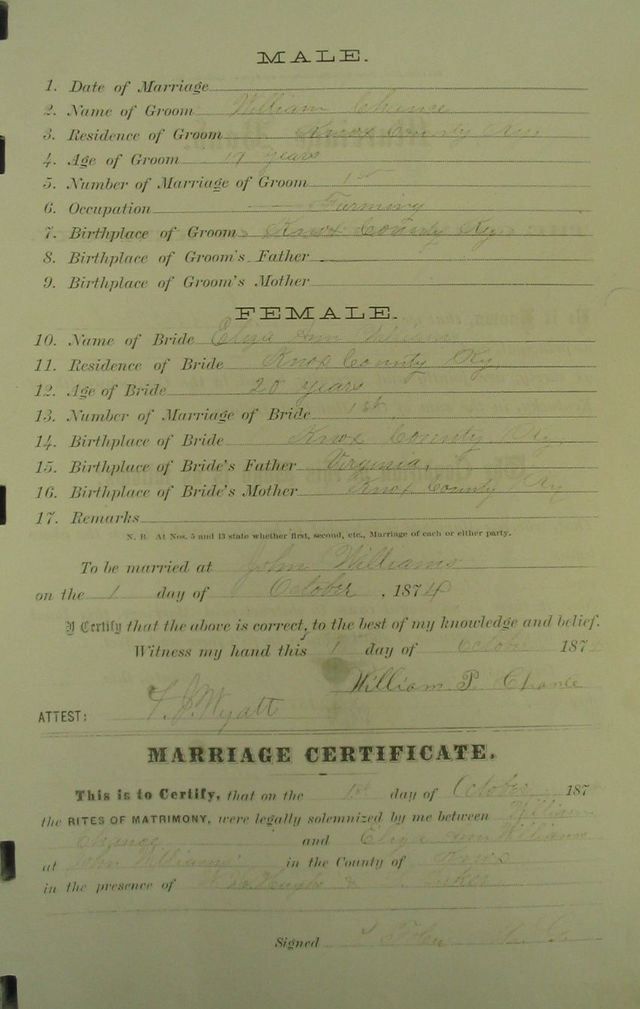 MALE.
1. Date of Marriage
2. Name of Groom William Chance
3. Residence of Groom Knox County Ky
4. Age of Groom 19 years
5. Number of Marriage of Groom 1st
6. Occupation Farming
7. Birthplace of Groom Knox County Ky
8. Birthplace of Groom's Father
9. Birthplace of Groom's Mother
FEMALE.
10. Name of Bride Eliza Ann Williams
11. Residence of Bride Knox County Ky
12. Age of Bride 20 years
13. Number of Marriage of Bride 1st
14. Birthplace of Bride Knox County Ky
15. Birthplace of Bride's Father Virginia
16. Birthplace of Bride's Mother Knox County Ky
17. Remarks
N. B. At Nos. 5 and 13 state whether first, second, etc., Marriage of each or either party.
To be married at John Williams
on the 1 day of October, 1874
I Certify that the above is correct, to the best of my knowledge and belief.
Witness my hand this 1 day of October 187
William P. Chance
ATTEST: Wyatt
MARRIAGE CERTIFICATE.
This is to Certify, that on the 1st day of October 187
the RITES OF MATRIMONY, were legally solemnized by me between William
Chance and Eliza Ann Williams
at John Williams' in the County of Knox
in the presence of
Signed